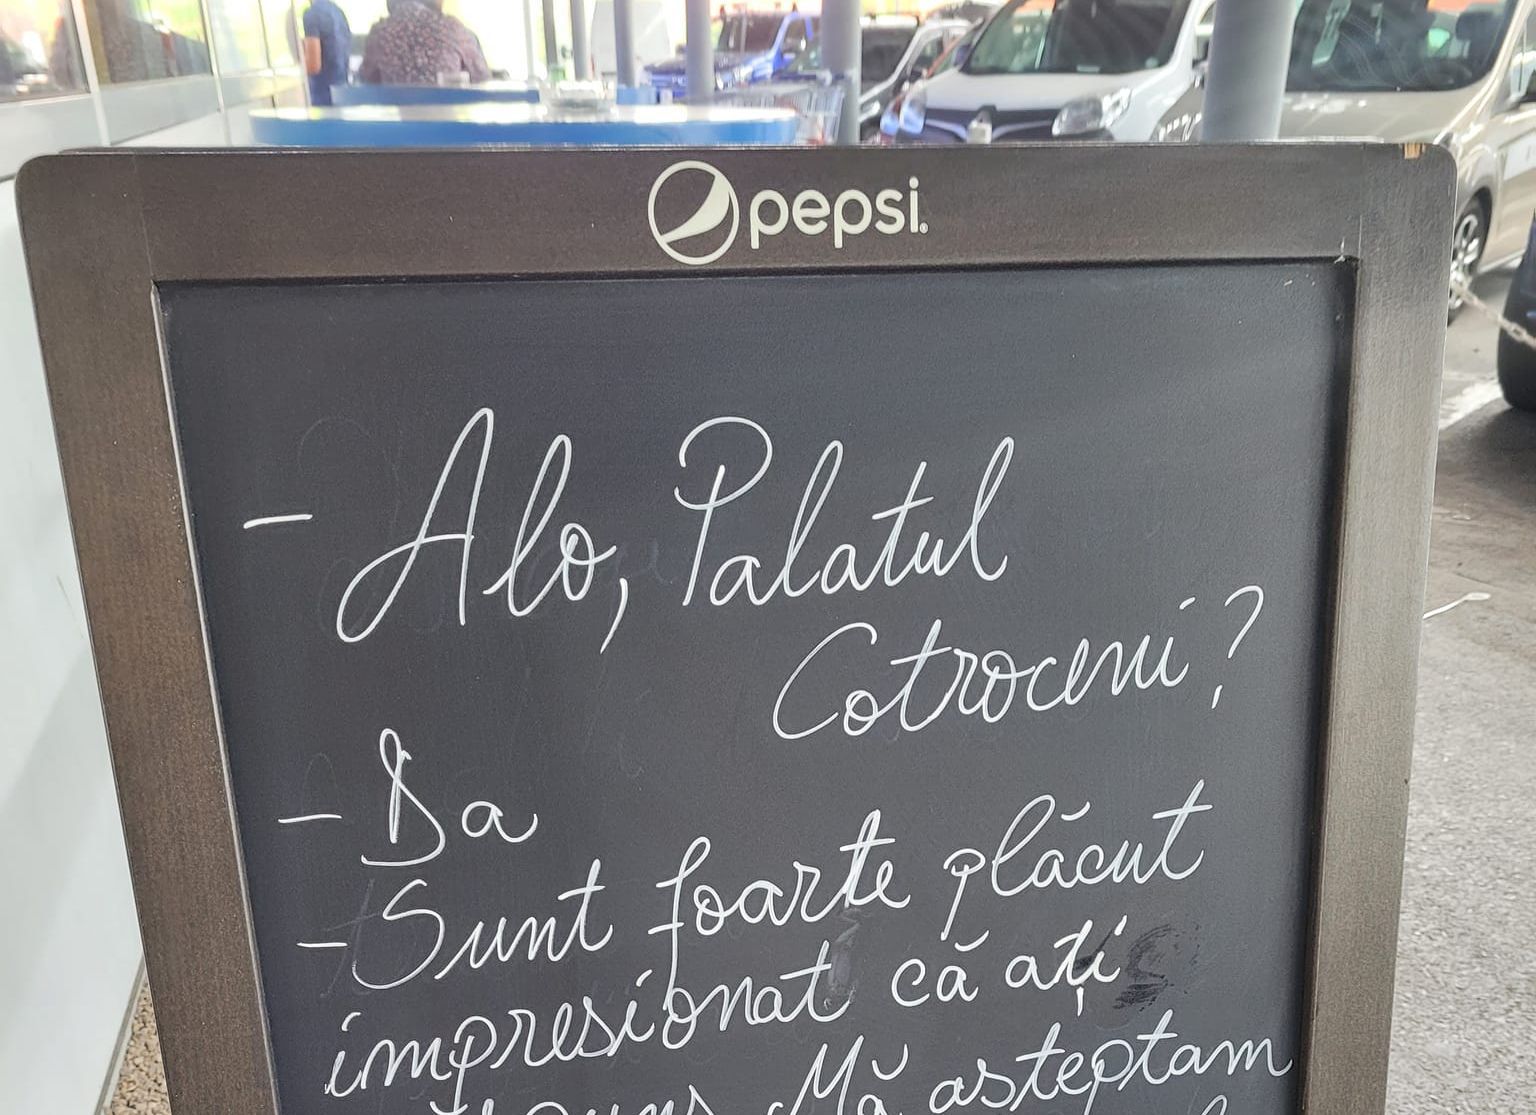 pepsi
- Alo, Palatul
Cotroceni?
- Da
- Sunt foarte plăcut
impresionat că ați
Mă asteptam